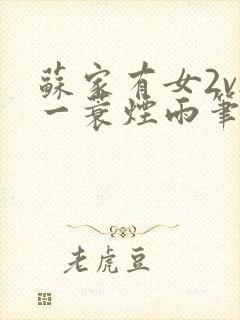 蘇家有女2v
一蓑煙雨筆
老虎豆